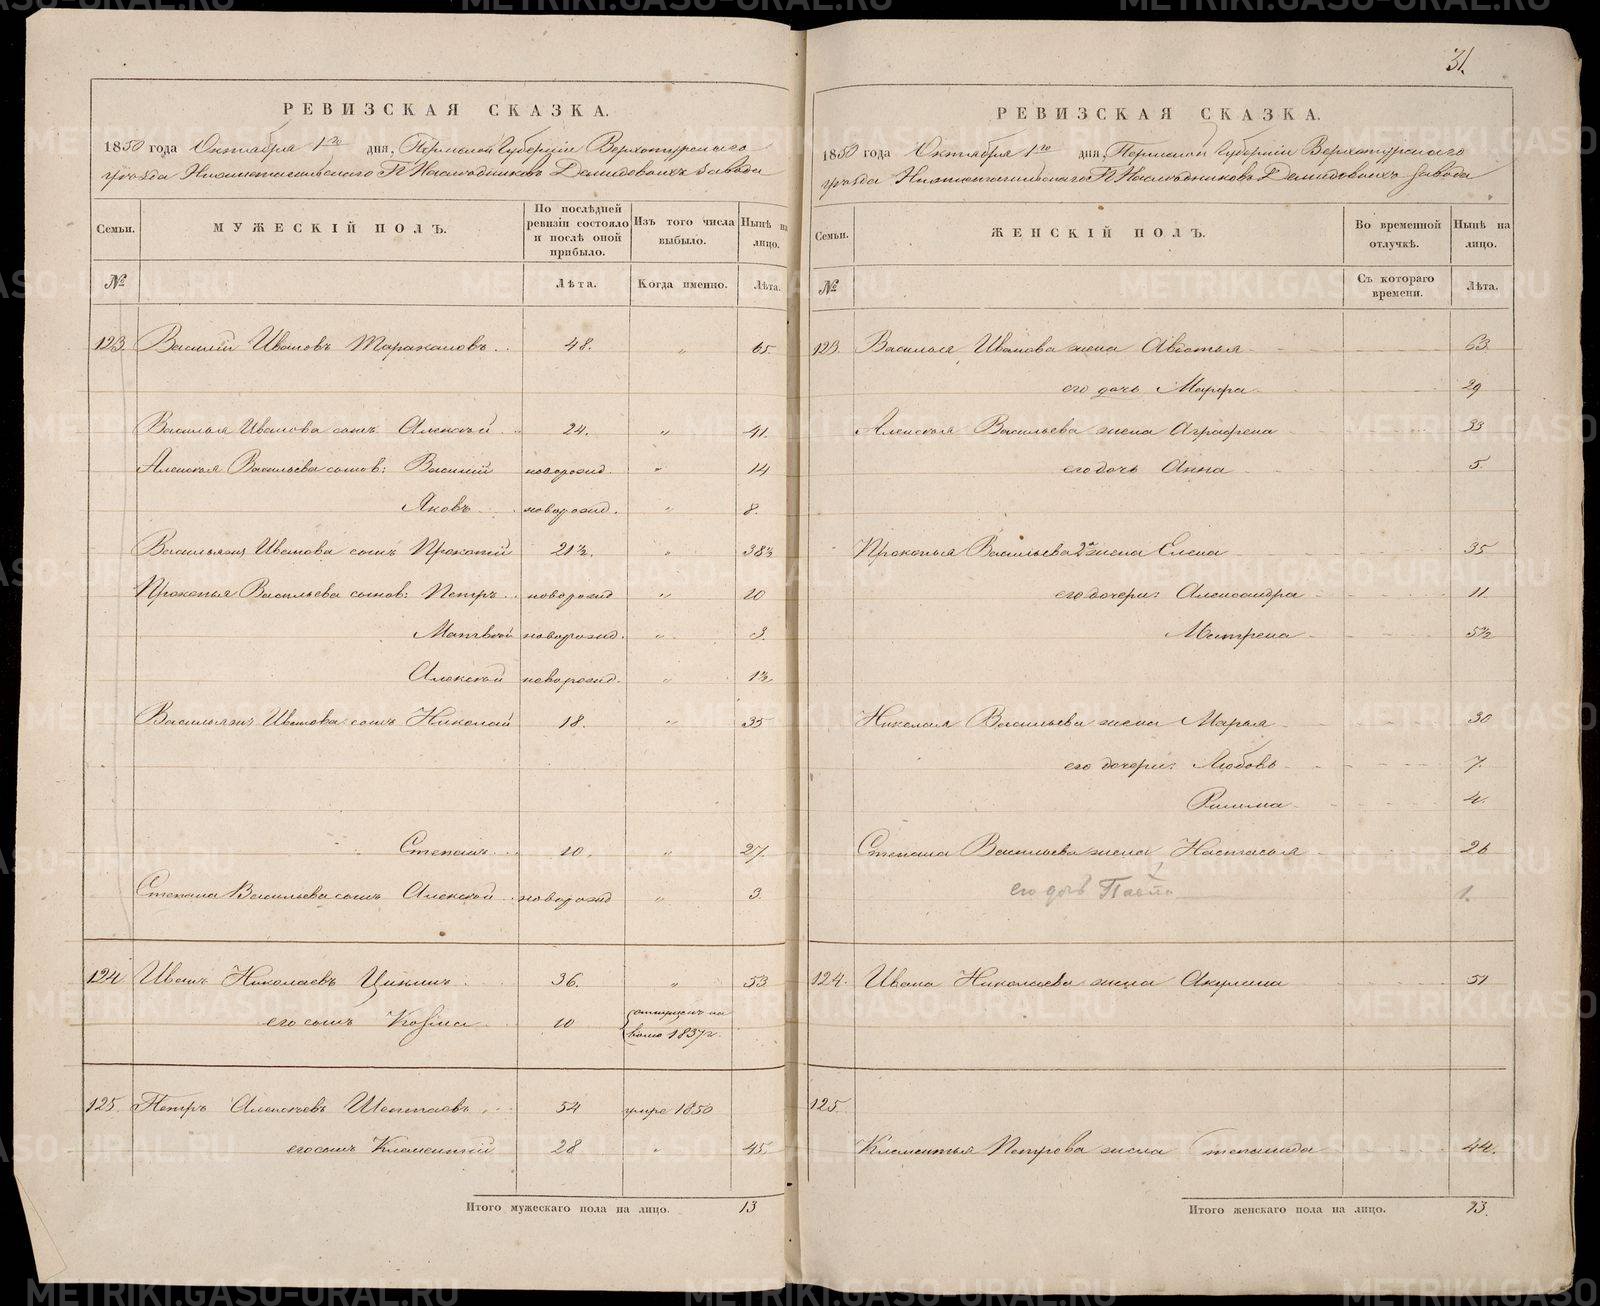 РЕВИЗСКАЯ СКАЗКА.
1850 года Октября 1го дня, Пермской Губернiи Верхотурскаго
уѣзда Нижнетагильскаго Наслѣдниковъ Демидовыхъ завода
Семьи.
МУЖЕСКIЙ ПОЛЪ.
По послѣдней ревизiи состояло и послѣ оной прибыло.
Изъ того числа выбыло.
Нынѣ на лицо.
№
Лѣта.
Когда именно.
Лѣта.
123. Василiй Ивановъ Таракановъ. 48. " 65.
Василья Иванова сынъ Алексѣй 24. " 41.
Алексѣя Васильева сынов: Василiй новорожд. " 14
Яковъ новорожд. " 8.
Васильяжъ Иванова сынъ Прокопiй 21½. " 38½
Прокопья Васильева сынов: Петръ новорожд " 20
Матвѣй новорожд. " 3.
Алексѣй новорожд. " 1½
Васильяжъ Иванова сынъ Николай 18. " 35
Степанъ 10. " 27.
Степана Васильева сынъ Алексѣй новорожд " 3.
124 Иванъ Николаевъ 36. " 53
его сынъ Козма 10 отпущенъ на
волю 1837 г.
125. Петръ Алексѣевъ 54 умре 1850
его сынъ Клементiй 28 " 45.
Итого мужескаго пола на лицо. 13
31.
РЕВИЗСКАЯ СКАЗКА.
1850 года Октября 1го дня, Пермской Губернiи Верхотурскаго
уѣзда Нижнетагильскаго Наслѣдниковъ Демидовыхъ завода
Семьи.
ЖЕНСКIЙ ПОЛЪ.
Во временной отлучкѣ.
Нынѣ на лицо.
№
Съ котораго времени.
Лѣта.
123. Василья Иванова жена Авдотья 63.
его дочь Марфа 29
Алексѣя Васильева жена Аграфена 33
его дочь Анна 5.
Прокопья Васильева 2я жена Елена 35
его дочери: Александра 11.
Матрена 5½
Николая Васильева жена Марья 30
его дочери: Любовь 7.
4.
Степана Васильева жена Настасья 26
его дочь 1.
124. Ивана Николаева жена Акулина 51
125.
Клементья Петрова жена Степанида 44.
Итого женскаго пола на лицо. 13.
METRIKI.GASO-URAL.RU